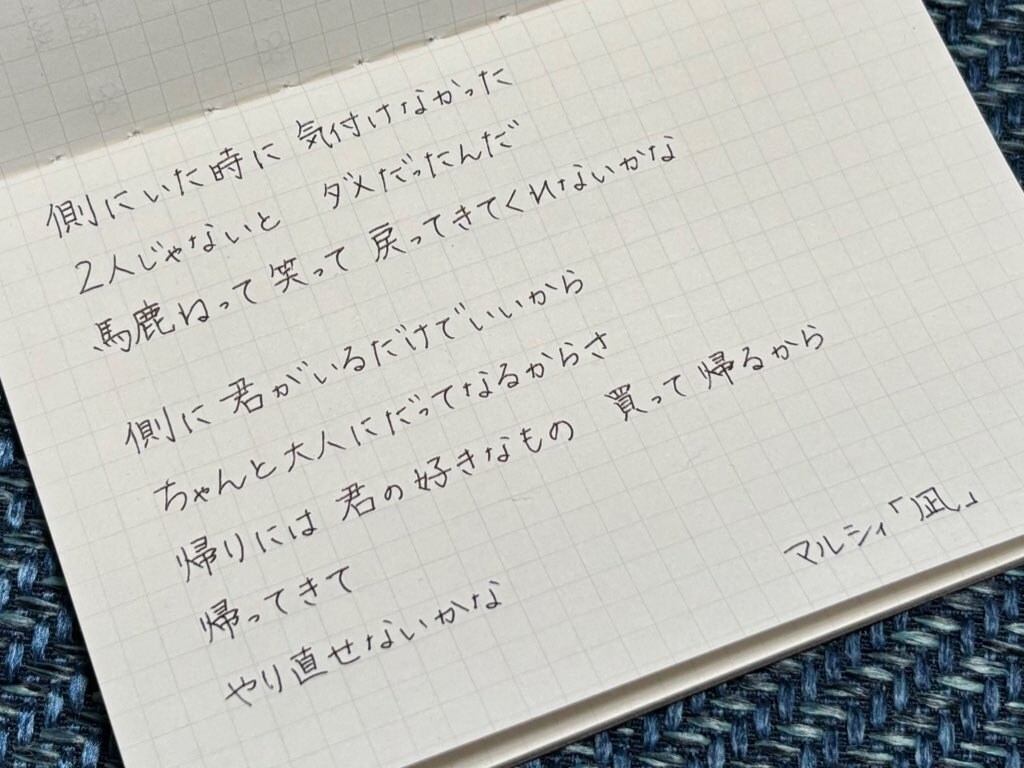 側にいた時に 気付けなかった
2人じゃないと ダメだったんだ
馬鹿ねって笑って 戻ってきてくれないかな
側に君がいるだけでいいから
ちゃんと大人にだってなるからさ
帰りには 君の好きなもの 買って帰るから
帰ってきて
やり直せないかな
マルシィ「凪」